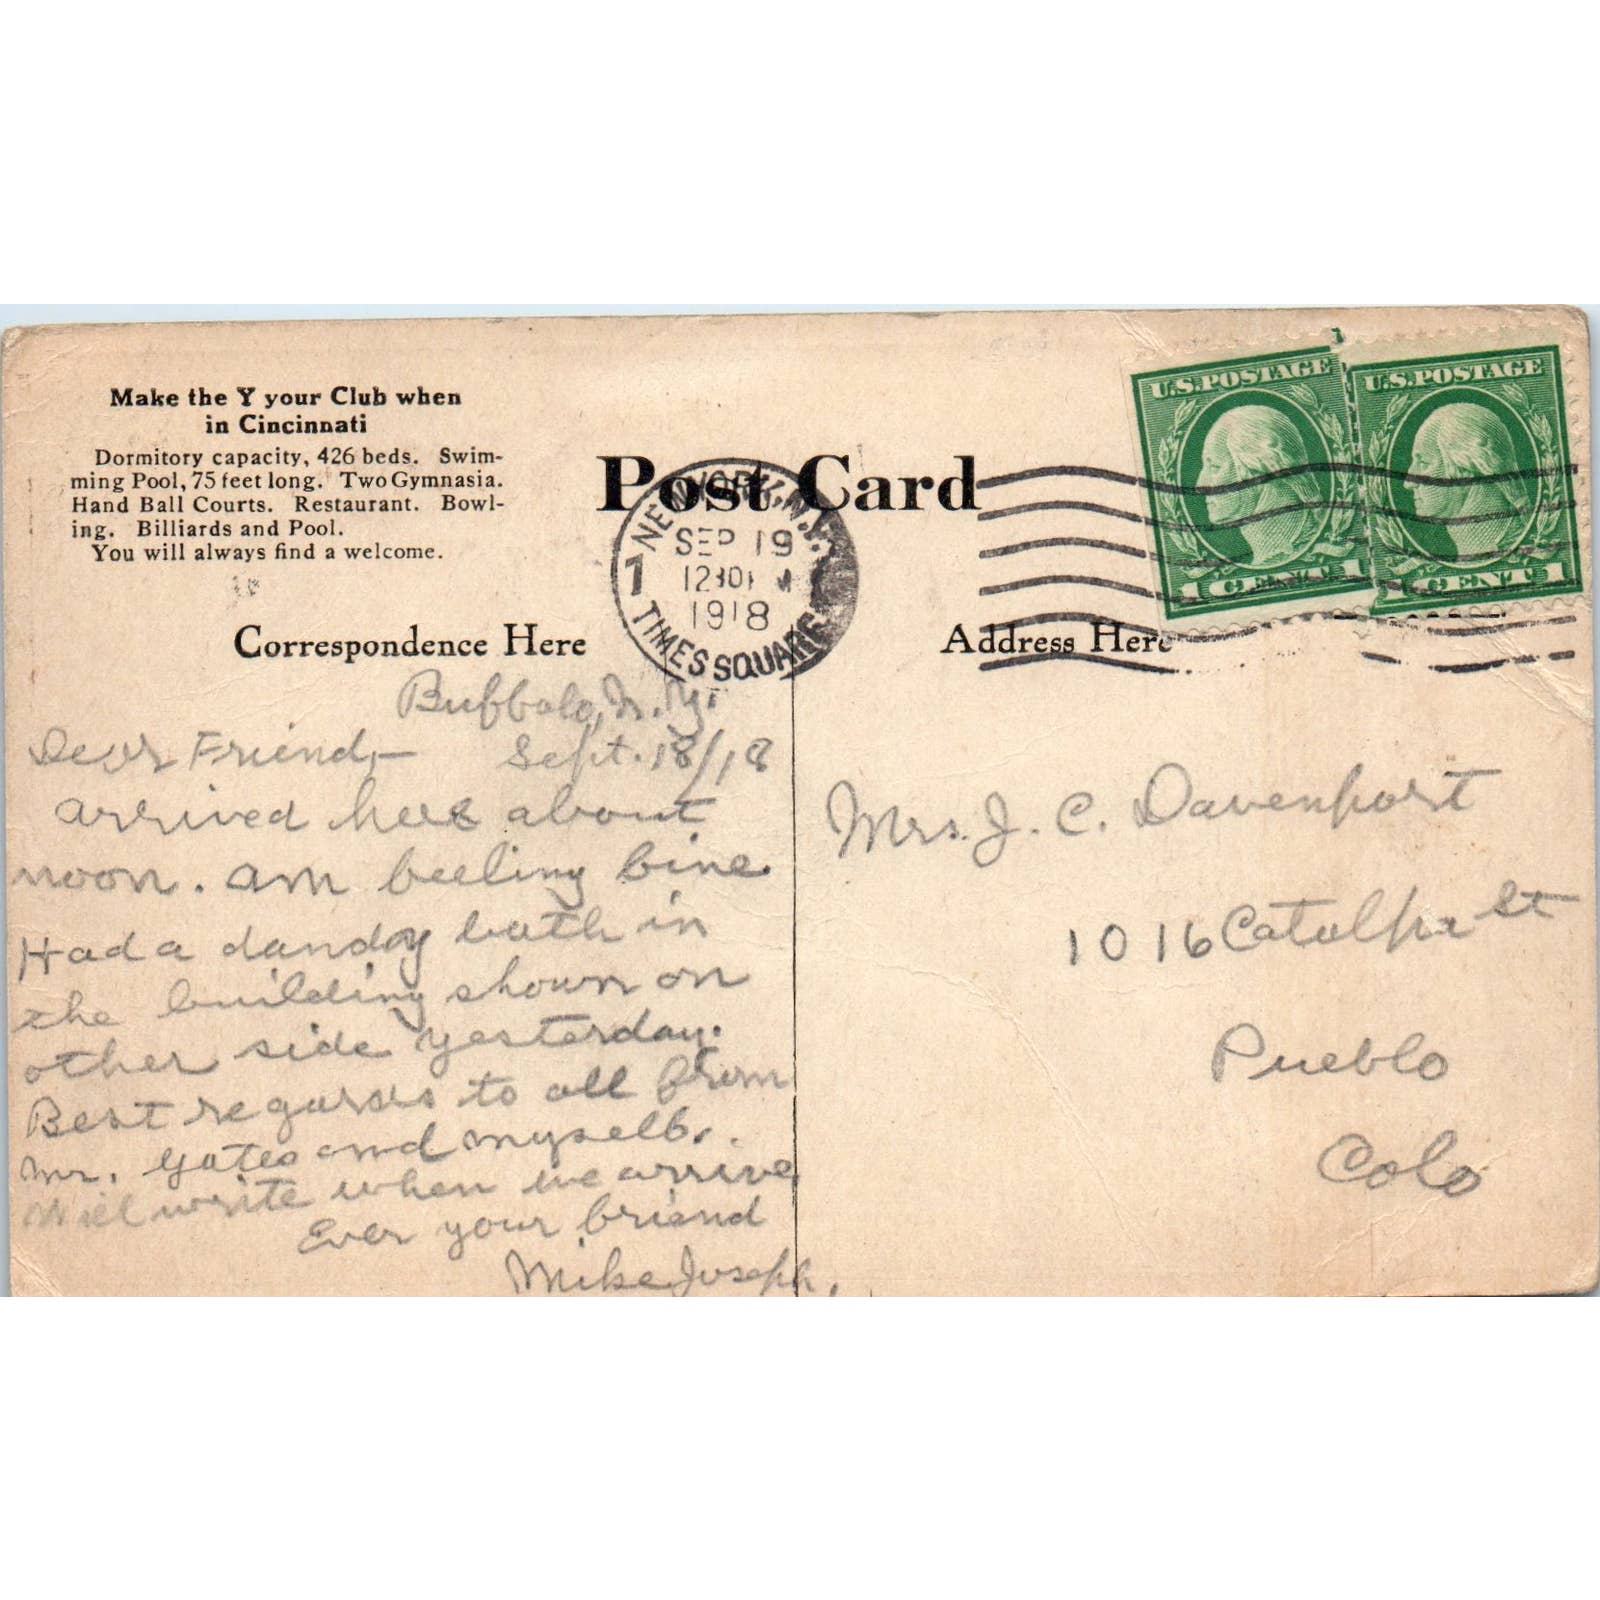 Make the Y your Club when
in Cincinnati
Dormitory capacity, 426 beds. Swim-
ming Pool, 75 feet long. Two Gymnasia.
Hand Ball Courts. Restaurant. Bowl-
ing. Billiards and Pool.
You will always find a welcome.
Post Card
NEW YORK, N.Y.
SEP 19
1918
7
TIMES SQUARE
U.S. POSTAGE
1 CENT 1
U.S. POSTAGE
1 CENT 1
Correspondence Here
Address Here
Buffalo, N.Y.
Sept. 18/18
Dear Friend,-
arrived here about
noon. am feeling fine
Had a dandy bath in
the building shown on
other side yesterday.
Best regards to all from
Mr. Yates and myself.
Will write when we arrive
Ever your friend
Mike Joseph.
Mrs. J. C. Davenport
1016 Catalpa St
Pueblo
Colo